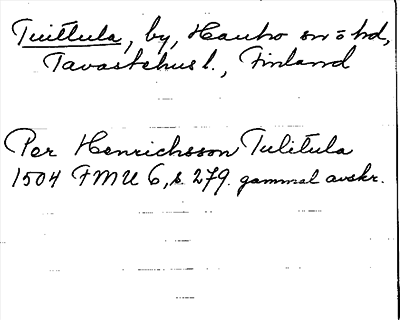 Tuittula, by, Hauho sn o hd,
Tavastehus l., Finland
Per Henrichsson Tulitula
1504 FMU 6, s. 279. gammal avskr.